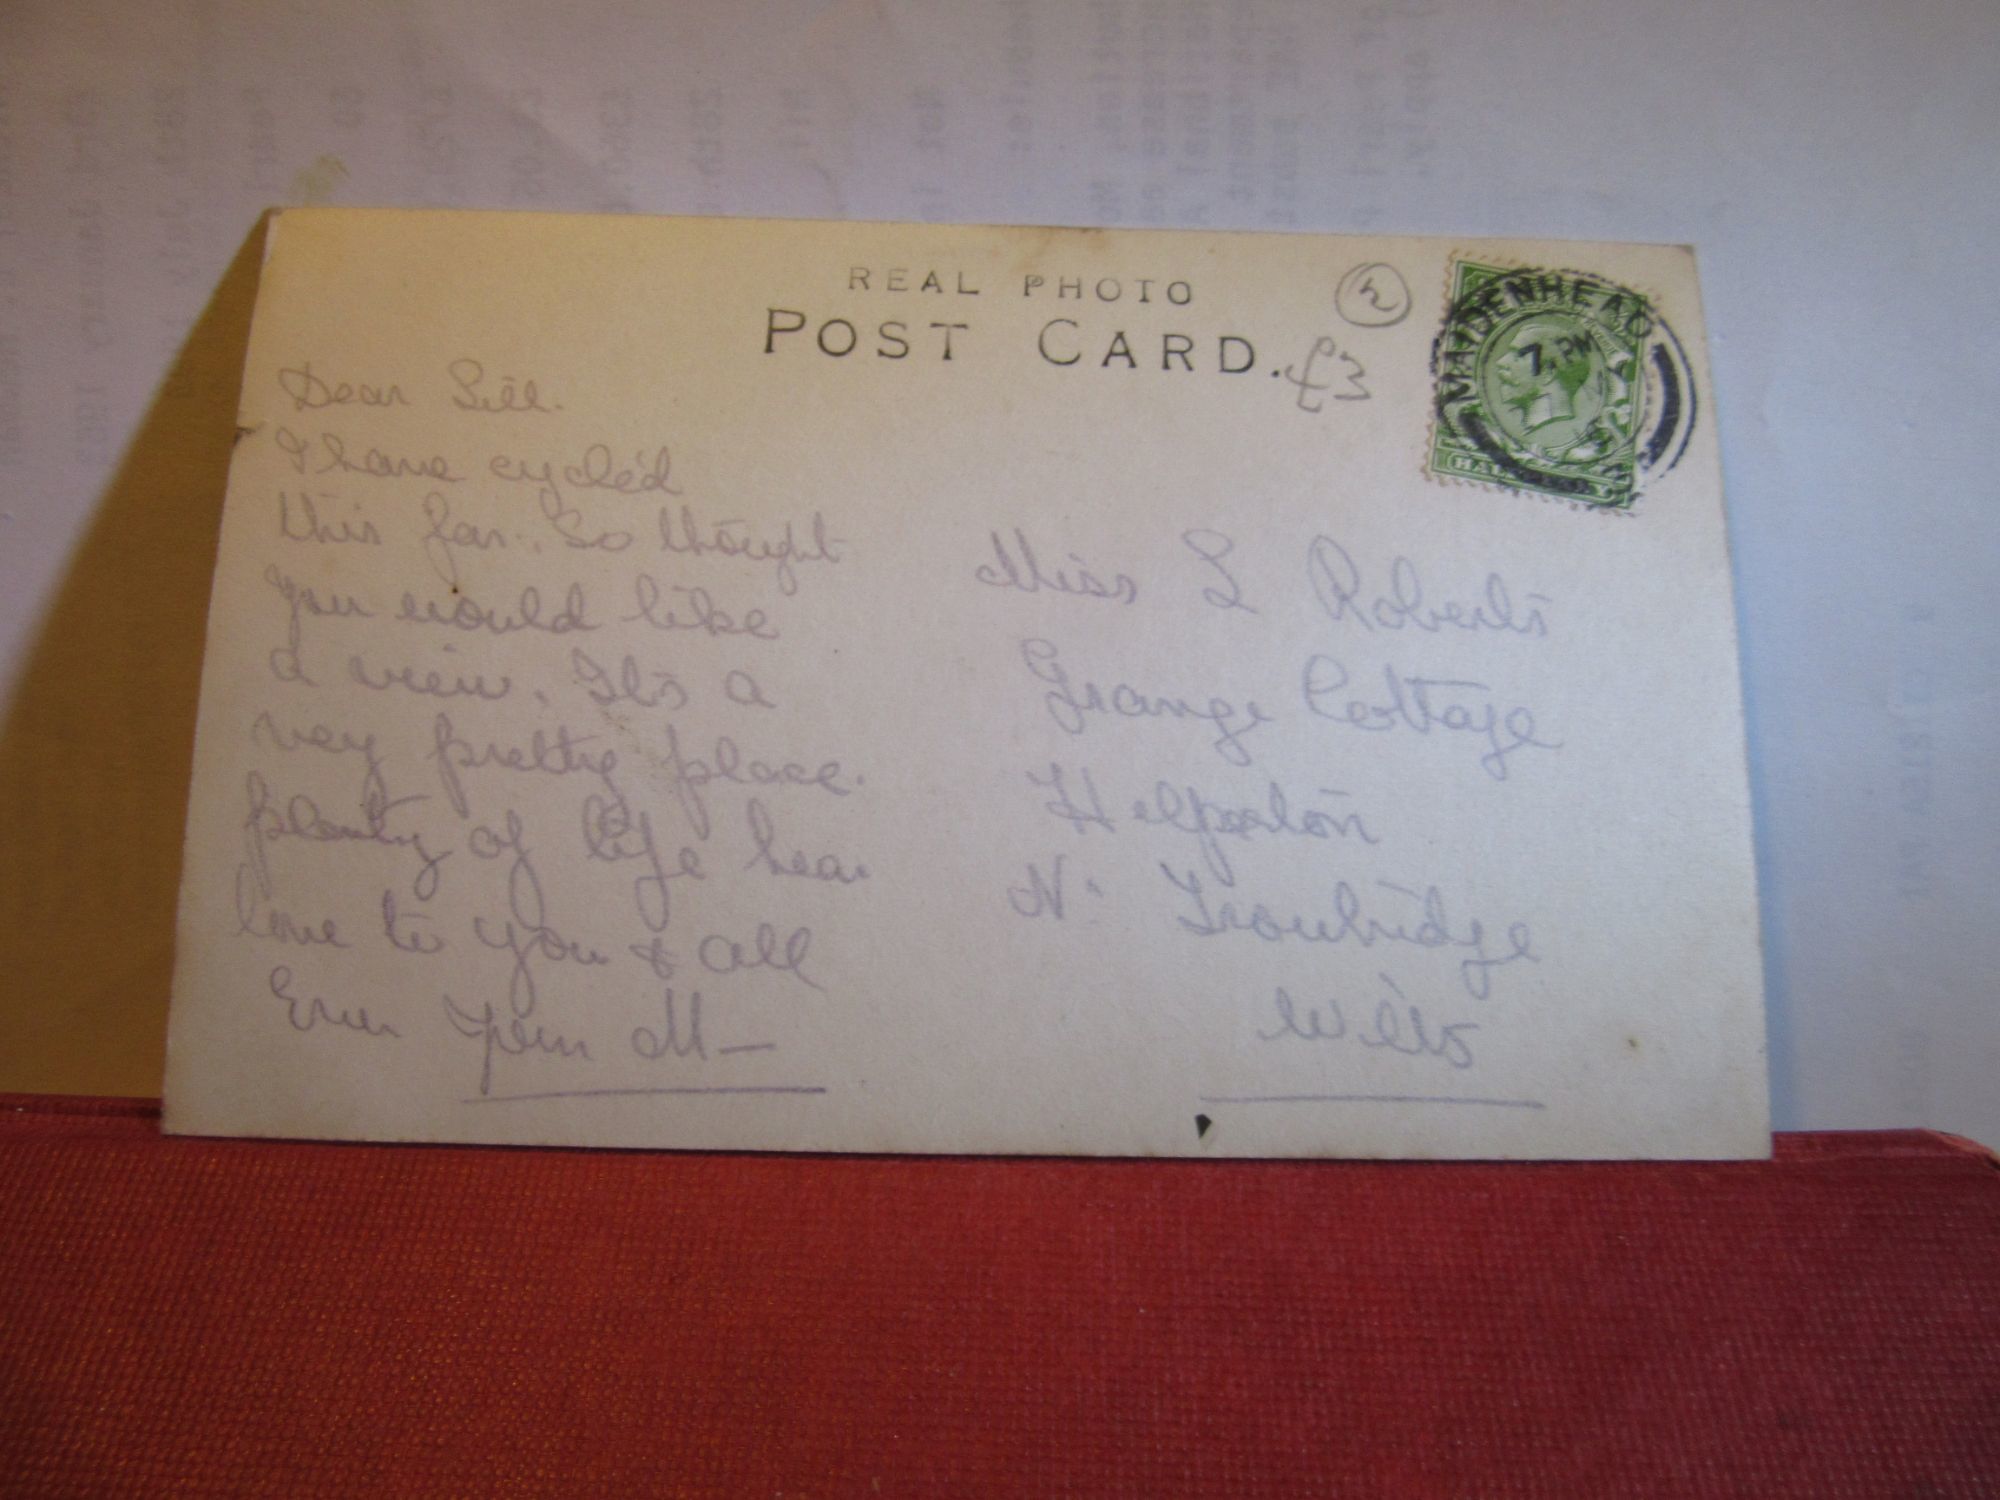 REAL PHOTO
POST CARD.
£3
MAIDENHEAD
7. PM
Dear
I have cycled
this far. So thought
you would like
a view. Its a
very pretty place.
plenty of life hear
love to you & all
Ever M—
Miss L Roberts
Grange Cottage
Hilperton
Nr Trowbridge
Wilts